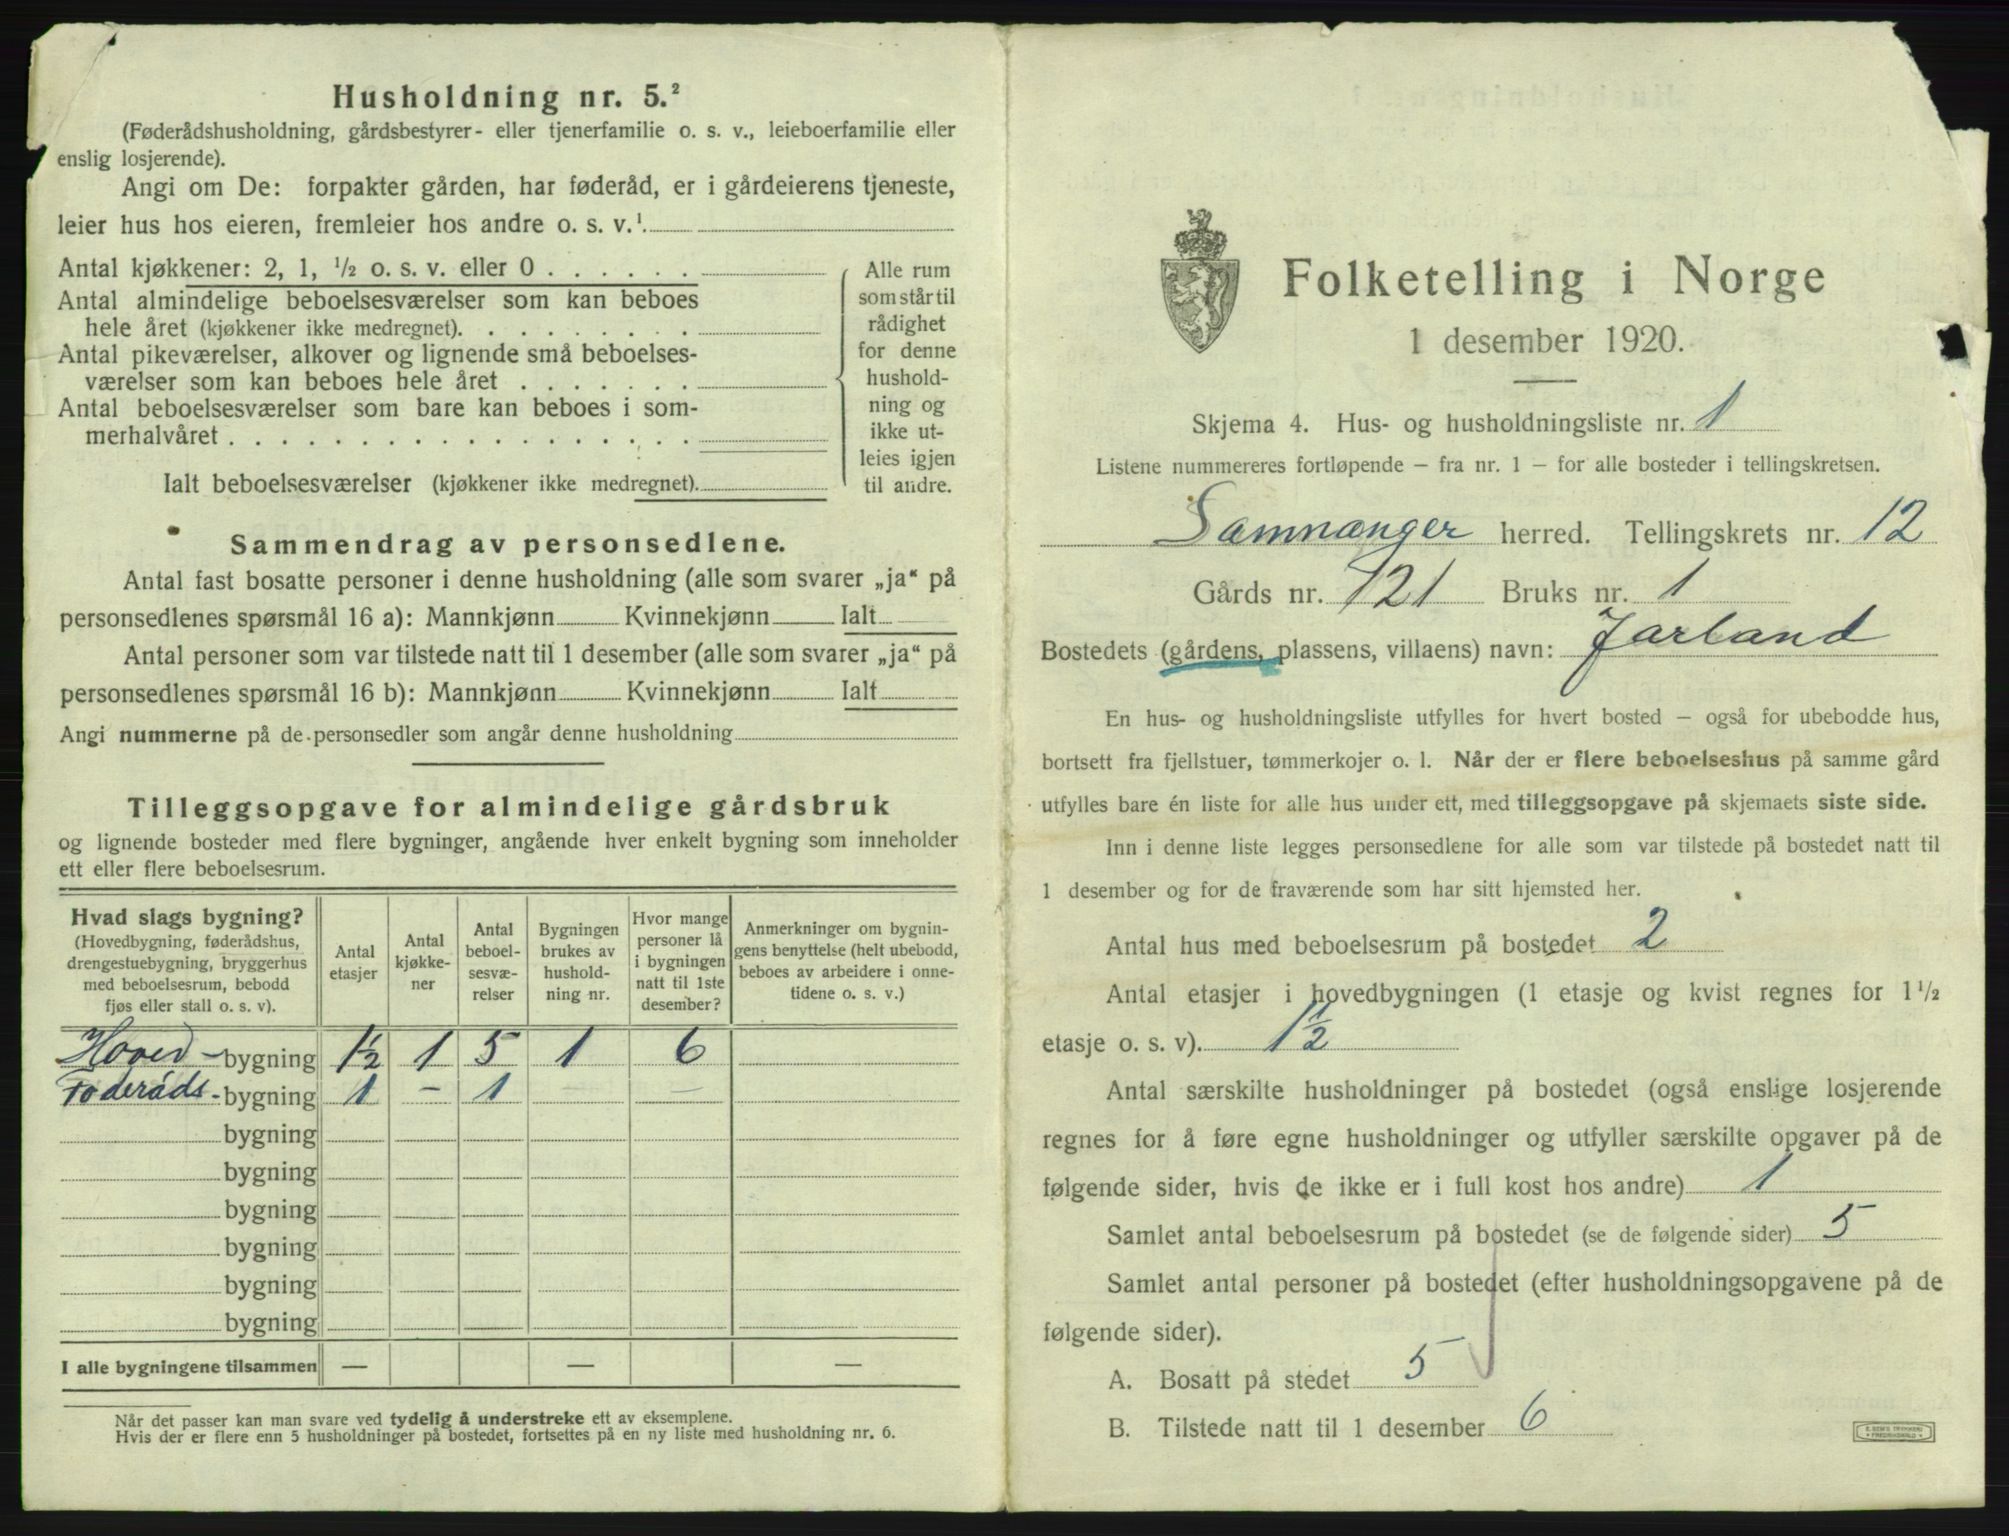 Husholdning nr. 5.²
(Føderådshusholdning, gårdsbestyrer- eller tjenerfamilie o. s. v., leieboerfamilie eller
enslig losjerende).
Angi om De: forpakter gården, har føderåd, er i gårdeierens tjeneste,
leier hus hos eieren, fremleier hos andre o. s. v.¹
Antal kjøkkener: 2, 1, ½ o. s. v. eller 0 . . . . . .
Antal almindelige beboelsesværelser som kan beboes
hele året (kjøkkener ikke medregnet). . . . . . . . .
Antal pikeværelser, alkover og lignende små beboelses-
værelser som kan beboes hele året . . . . . . .
Antal beboelsesværelser som bare kan beboes i som-
merhalvåret . . . . . . . . . . . . . . . . . .
Ialt beboelsesværelser (kjøkkener ikke medregnet).
Alle rum
som står til
rådighet
for denne
hushold-
ning og
ikke ut-
leies igjen
til andre.
Sammendrag av personsedlene.
Antal fast bosatte personer i denne husholdning (alle som svarer „ja“ på
personsedlenes spørsmål 16 a): Mannkjønn Kvinnekjønn Ialt
Antal personer som var tilstede natt til 1 desember (alle som svarer „ja“ på
personsedlenes spørsmål 16 b): Mannkjønn Kvinnekjønn Ialt
Angi nummerne på de personsedler som angår denne husholdning
Tilleggsopgave for almindelige gårdsbruk
og lignende bosteder med flere bygninger, angående hver enkelt bygning som inneholder
ett eller flere beboelsesrum.
Hvad slags bygning?
(Hovedbygning, føderådshus,
drengestuebygning, bryggerhus
med beboelsesrum, bebodd
fjøs eller stall o. s. v).
Antal
etasjer
Antal
kjøkke-
ner
Antal
beboel-
sesvæ-
relser
Bygningen
brukes av
hushold-
ning nr.
Hvor mange
personer lå
i bygningen
natt til 1ste
desember?
Anmerkninger om bygnin-
gens benyttelse (helt ubebodd,
beboes av arbeidere i onne-
tidene o. s. v.)
Hoved-bygning 1½ 1 5 1 6
Føderåds-bygning 1 – 1 – –
bygning
bygning
bygning
bygning
bygning
bygning
I alle bygningene tilsammen — — —
Når det passer kan man svare ved tydelig å understreke ett av eksemplene.
Hvis der er flere enn 5 husholdninger på bostedet, fortsettes på en ny liste med husholdning nr. 6.
Folketelling i Norge
1 desember 1920.
Skjema 4. Hus- og husholdningsliste nr. 1
Listene nummereres fortløpende – fra nr. 1 – for alle bosteder i tellingskretsen.
Samnanger herred. Tellingskrets nr. 12
Gårds nr. 121 Bruks nr. 1
Bostedets (gårdens, plassens, villaens) navn: Jarland
En hus- og husholdningsliste utfylles for hvert bosted – også for ubebodde hus,
bortsett fra fjellstuer, tømmerkojer o. l. Når der er flere beboelseshus på samme gård
utfylles bare én liste for alle hus under ett, med tilleggsopgave på skjemaets siste side.
Inn i denne liste legges personsedlene for alle som var tilstede på bostedet natt til
1 desember og for de fraværende som har sitt hjemsted her.
Antal hus med beboelsesrum på bostedet 2
Antal etasjer i hovedbygningen (1 etasje og kvist regnes for 1½
etasje o. s. v). 1½
Antal særskilte husholdninger på bostedet (også enslige losjerende
regnes for å føre egne husholdninger og utfyller særskilte opgaver på de
følgende sider, hvis de ikke er i full kost hos andre) 1
Samlet antal beboelsesrum på bostedet (se de følgende sider) 5
Samlet antal personer på bostedet (efter husholdningsopgavene på de
følgende sider).
A. Bosatt på stedet 5
B. Tilstede natt til 1 desember 6